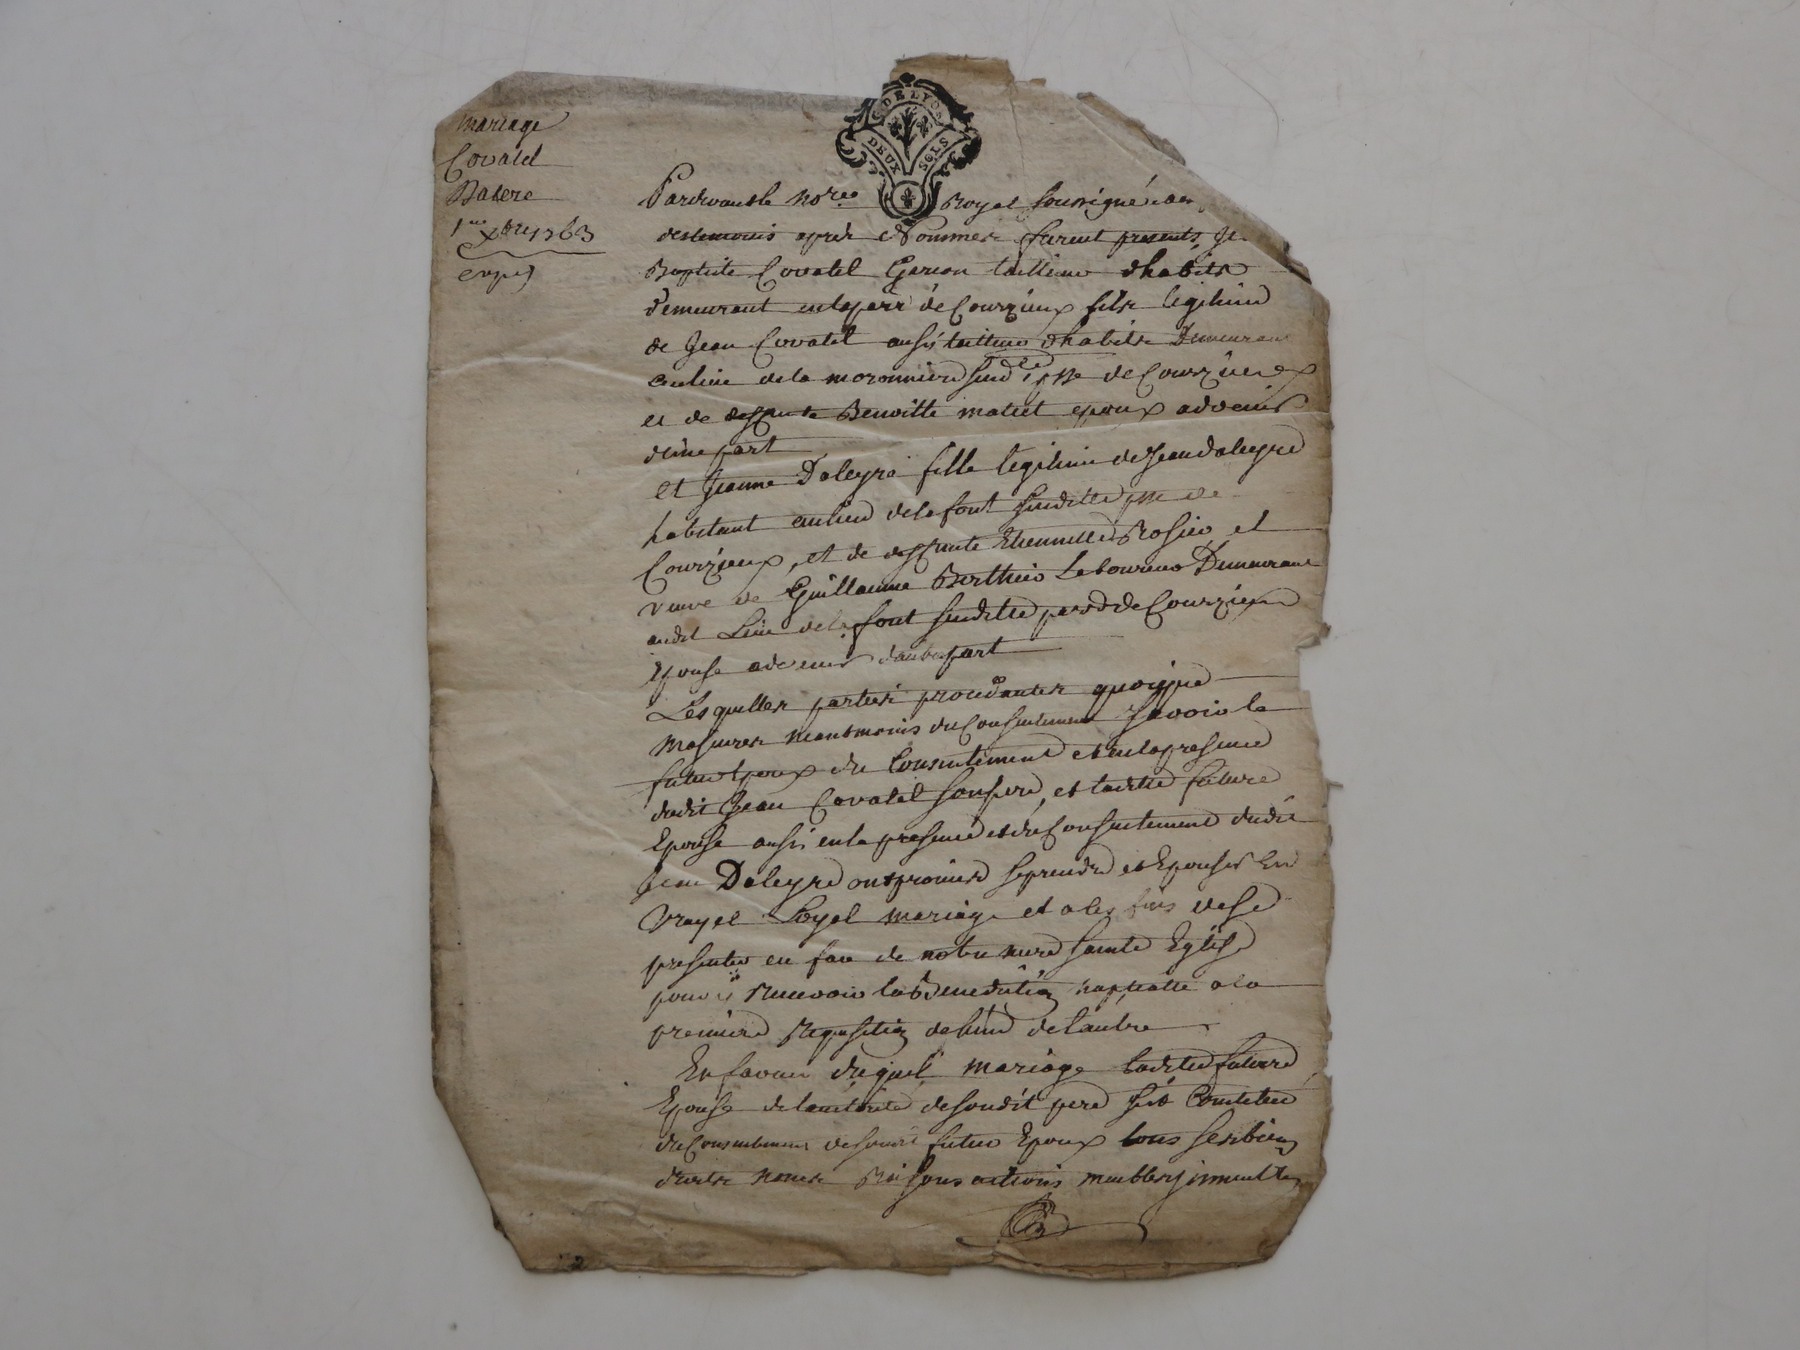 mariage
Covatel
Dalere
1er Xbre 1763
expé
G. DE LYON
DEUX SOLS
Pardevant le no.re Royal soussigné et
des temoins après Nommés furent presents Je
Baptiste Covatel Garcon tailleur dhabits
demeurant en la parr de Courzieux fils legitime
de Jean Covatel aussi tailleur dhabits Demeurant
au lieu de la moronniere susd.e psse de Courzieux
et de deffunte Benoitte matret epoux advenir
d'une part
et Jeanne Daleyre fille legitime de Jean daleyre
habitant au lieu de la font susditte psse de
Courzieux, et de deffunte Etiennette Rosier, et
veuve de Guillaume Berthier Laboureur Demeurant
audit Lieu de la font susditte parr de Courzieux
Epouse advenir d'autre part
Lesquelles parties procedantes quoique
Majeures neantmoins du Consentement Savoir le
futur epoux du Consentement et en la presence
dudit Jean Covatel son pere, et laditte future
Epouse aussi en la presence et du Consentement dudit
Jean Daleyre ont promis se prendre et Epouser En
vray et Loyal mariage et a les fins de se
presenter en face de notre mere Sainte Eglise
pour y Recevoir la Benediction nuptialle a la
premiere Requisition de lune de lautre
En faveur duquel mariage laditte future
Epouse de lautorité de sondit pere sest Constitué
du Consentement de sondit futur Epoux tous ses biens
droits noms Raisons actions meubles immeubles